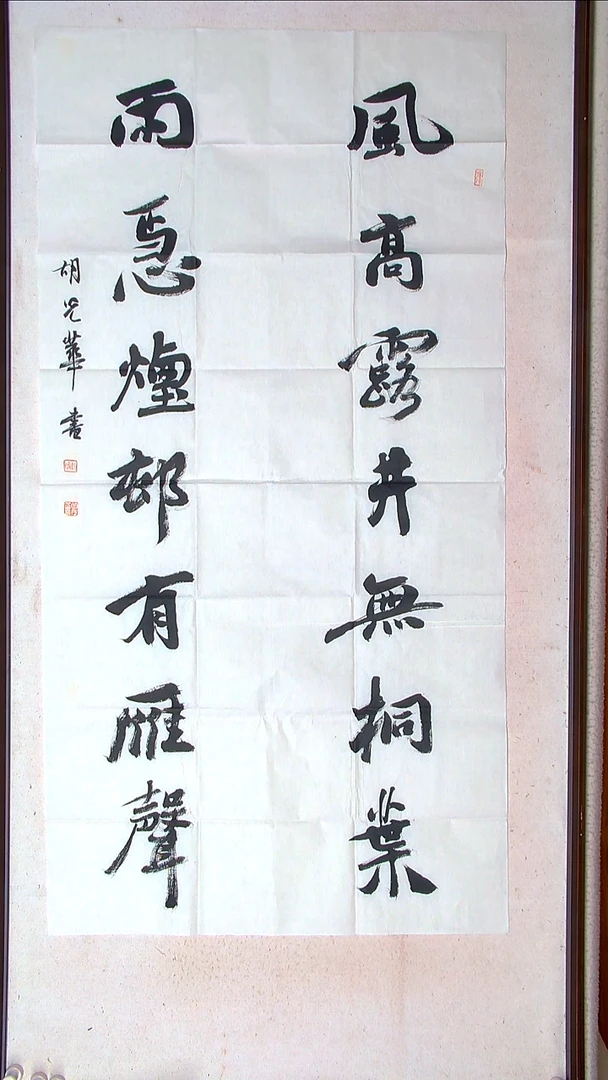 風高露井無桐葉
雨急煙邨有雁聲
胡光華書